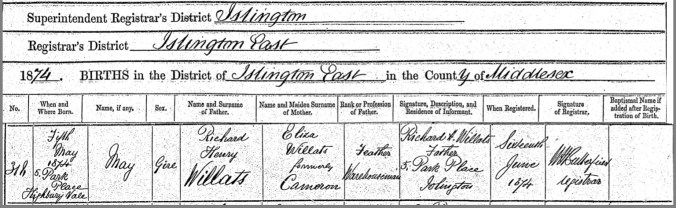 Superintendent Registrar's District Islington
Registrar's District Islington East
1874. BIRTHS in the District of Islington East in the County of Middlesex
No. When and Where Born. Name, if any. Sex. Name and Surname of Father. Name and Maiden Surname of Mother. Rank or Profession of Father. Signature, Description, and Residence of Informant. When Registered. Signature of Registrar. Baptismal Name if added after Registration of Birth.
Fifth
May
1874
5. Park
Place
Highbury Vale
May
Girl
Richard
Henry
Willats
Eliza
Willats
formerly
Cameron
Feather
Warehouseman
Richard H. Willats
Father
5, Park Place
Islington
Sixteenth
June
1874
registrar